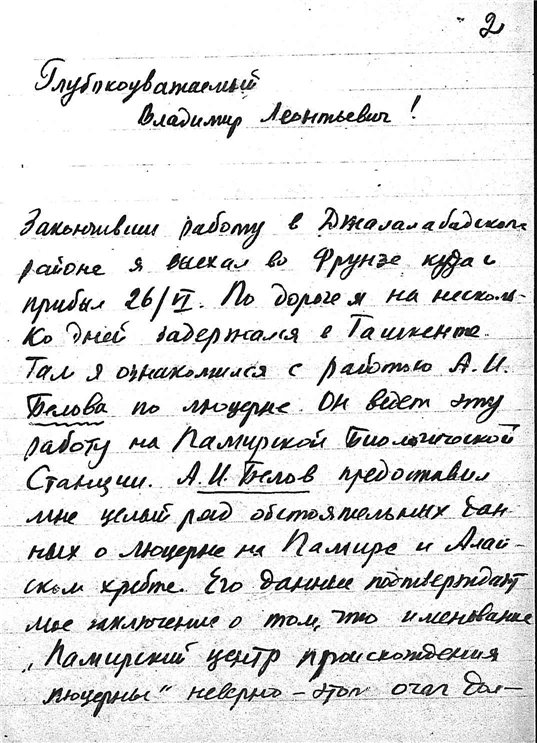 2
Глубокоуважаемый
Владимир Леонтьевич!
Закончивши работу в Джалалабадском
районе я выехал во Фрунзе куда и
прибыл 26/VI. По дороге я на несколь-
ко дней задержался в Ташкенте.
Там я ознакомился с работою А.И.
Белова по люцерне. Он ведет эту
работу на Памирской Биологической
Станции. А.И. Белов предоставил
мне целый ряд обстоятельных дан-
ных о люцерне на Памире и Алай-
ском хребте. Его данные подтверждают
мое заключение о том, что именование
„Памирский центр происхождения
люцерны" неверно – этот очаг дол-